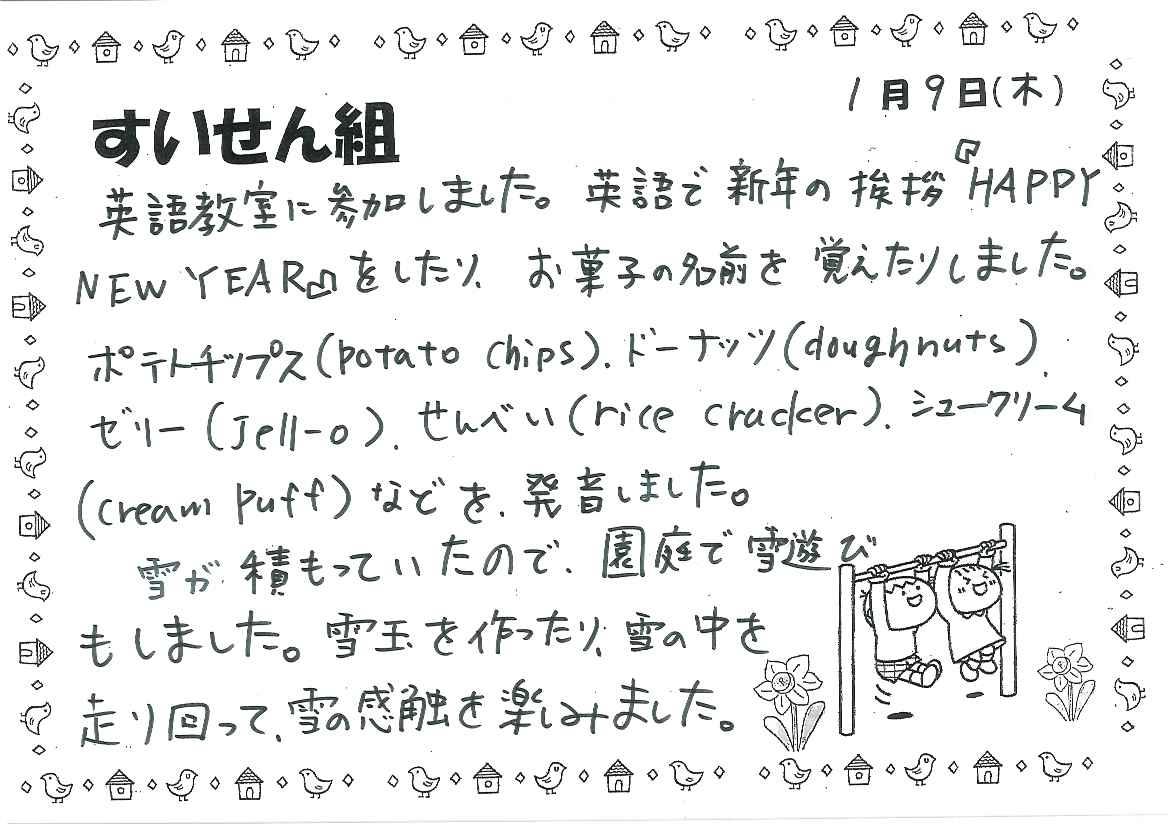 1月9日(木)
すいせん組
英語教室に参加しました。英語で新年の挨拶『HAPPY
NEW YEAR』をしたり、お菓子の名前を覚えたりしました。
ポテトチップス(potato chips)、ドーナッツ(doughnuts)、
ゼリー(Jell-o)、せんべい(rice cracker)、シュークリーム
(cream puff)などを、発音しました。
雪が積もっていたので、園庭で雪遊び
もしました。雪玉を作ったり、雪の中を
走り回って、雪の感触を楽しみました。